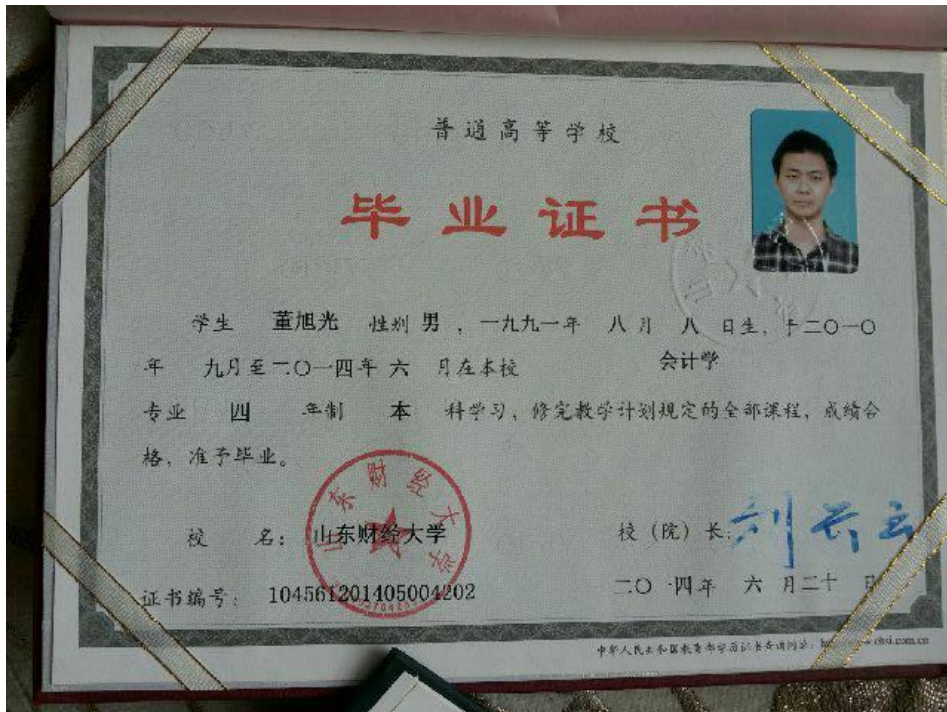 普通高等学校
毕业证书
学生 董旭光 性别 男 ，一九九一年 八 月 八 日生，于二〇一〇
年 九月至二〇一四年 六 月在本校 会计学
专业 四 年制 本 科学习，修完教学计划规定的全部课程，成绩合
格，准予毕业。
山东财经大学
校 名：山东财经大学 校（院）长：
证书编号： 104561201405004202 二〇一四年 六 月二十 日
中华人民共和国教育部学历证书查询网址：